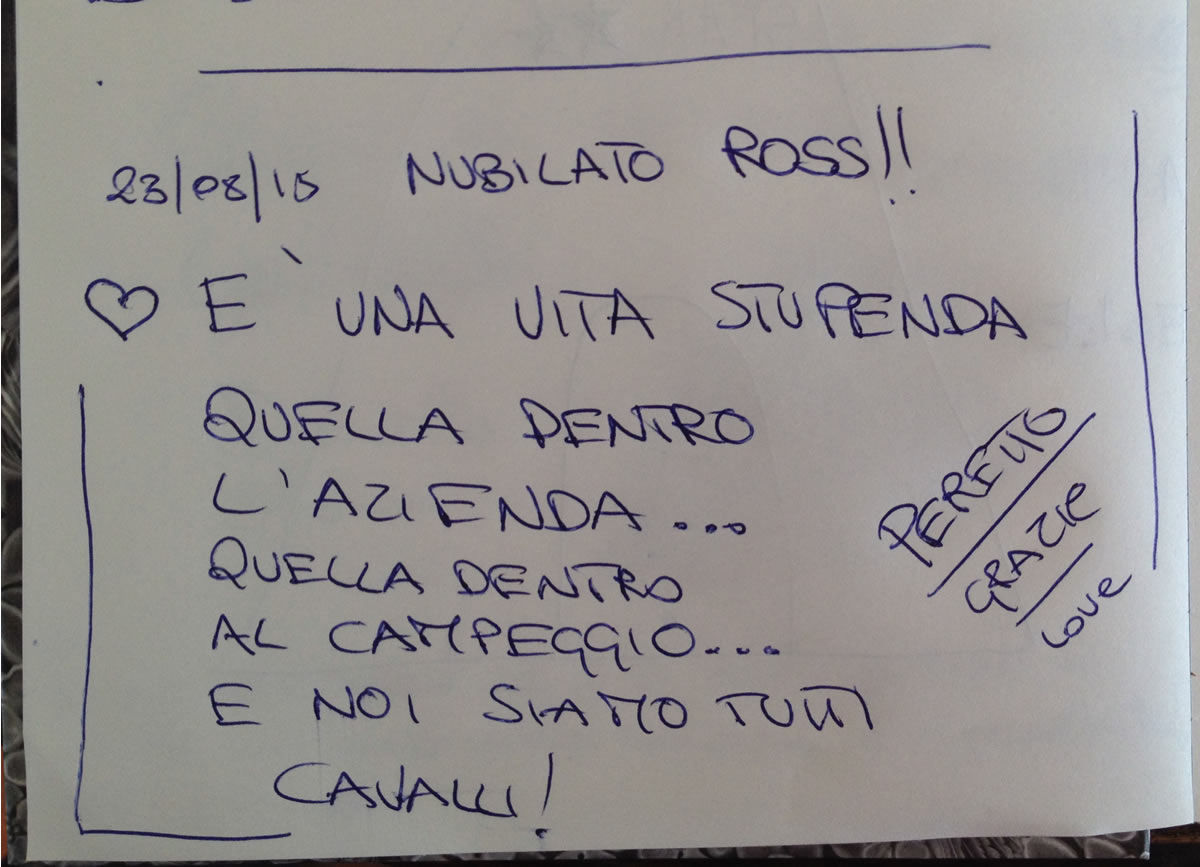 23/08/15 NUBILATO ROSS!!
♡ E` UNA VITA STUPENDA
QUELLA DENTRO
L'AZIENDA...
QUELLA DENTRO
AL CAMPEGGIO....
E NOI SIAMO TUTTI
CAVALLI!
PERETTO
GRAZIE
LOVE